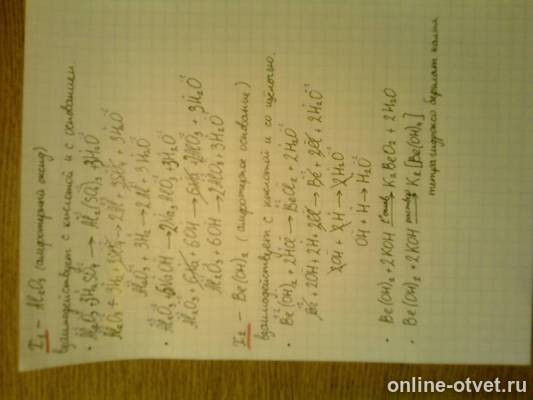 I₁ – Al₂O₃ (амфотерный оксид)
взаимодействует с кислотой и с основанием
• Al₂O₃ + 3H₂SO₄ → Al₂(SO₄)₃ + 3H₂O
Al₂O₃ + 3H₂ + 3SO₄ → 2Al + 3SO₄ + 3H₂O
Al₂O₃ + 3H₂ → 2Al + 3H₂O
• Al₂O₃ + 6NaOH → 2Na₃AlO₃ + 3H₂O
Al₂O₃ + 6Na + 6OH → 6Na + 2AlO₃ + 3H₂O
Al₂O₃ + 6OH → 2AlO₃ + 3H₂O
I₂ – Be(OH)₂ (амфотерное основание)
взаимодействует с кислотой и со щёлочью.
• Be(OH)₂ + 2HCl → BeCl₂ + 2H₂O
Be + 2OH + 2H + 2Cl → Be + 2Cl + 2H₂O
2OH + 2H → 2H₂O
OH + H → H₂O
• Be(OH)₂ + 2KOH сплав → K₂BeO₂ + 2H₂O
• Be(OH)₂ + 2KOH раствор → K₂[Be(OH)₄]
тетрагидроксобериллат калия
online-otvet.ru